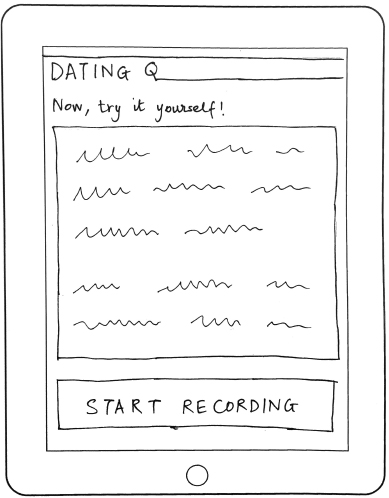 DATING Q
Now, try it yourself!
START RECORDING